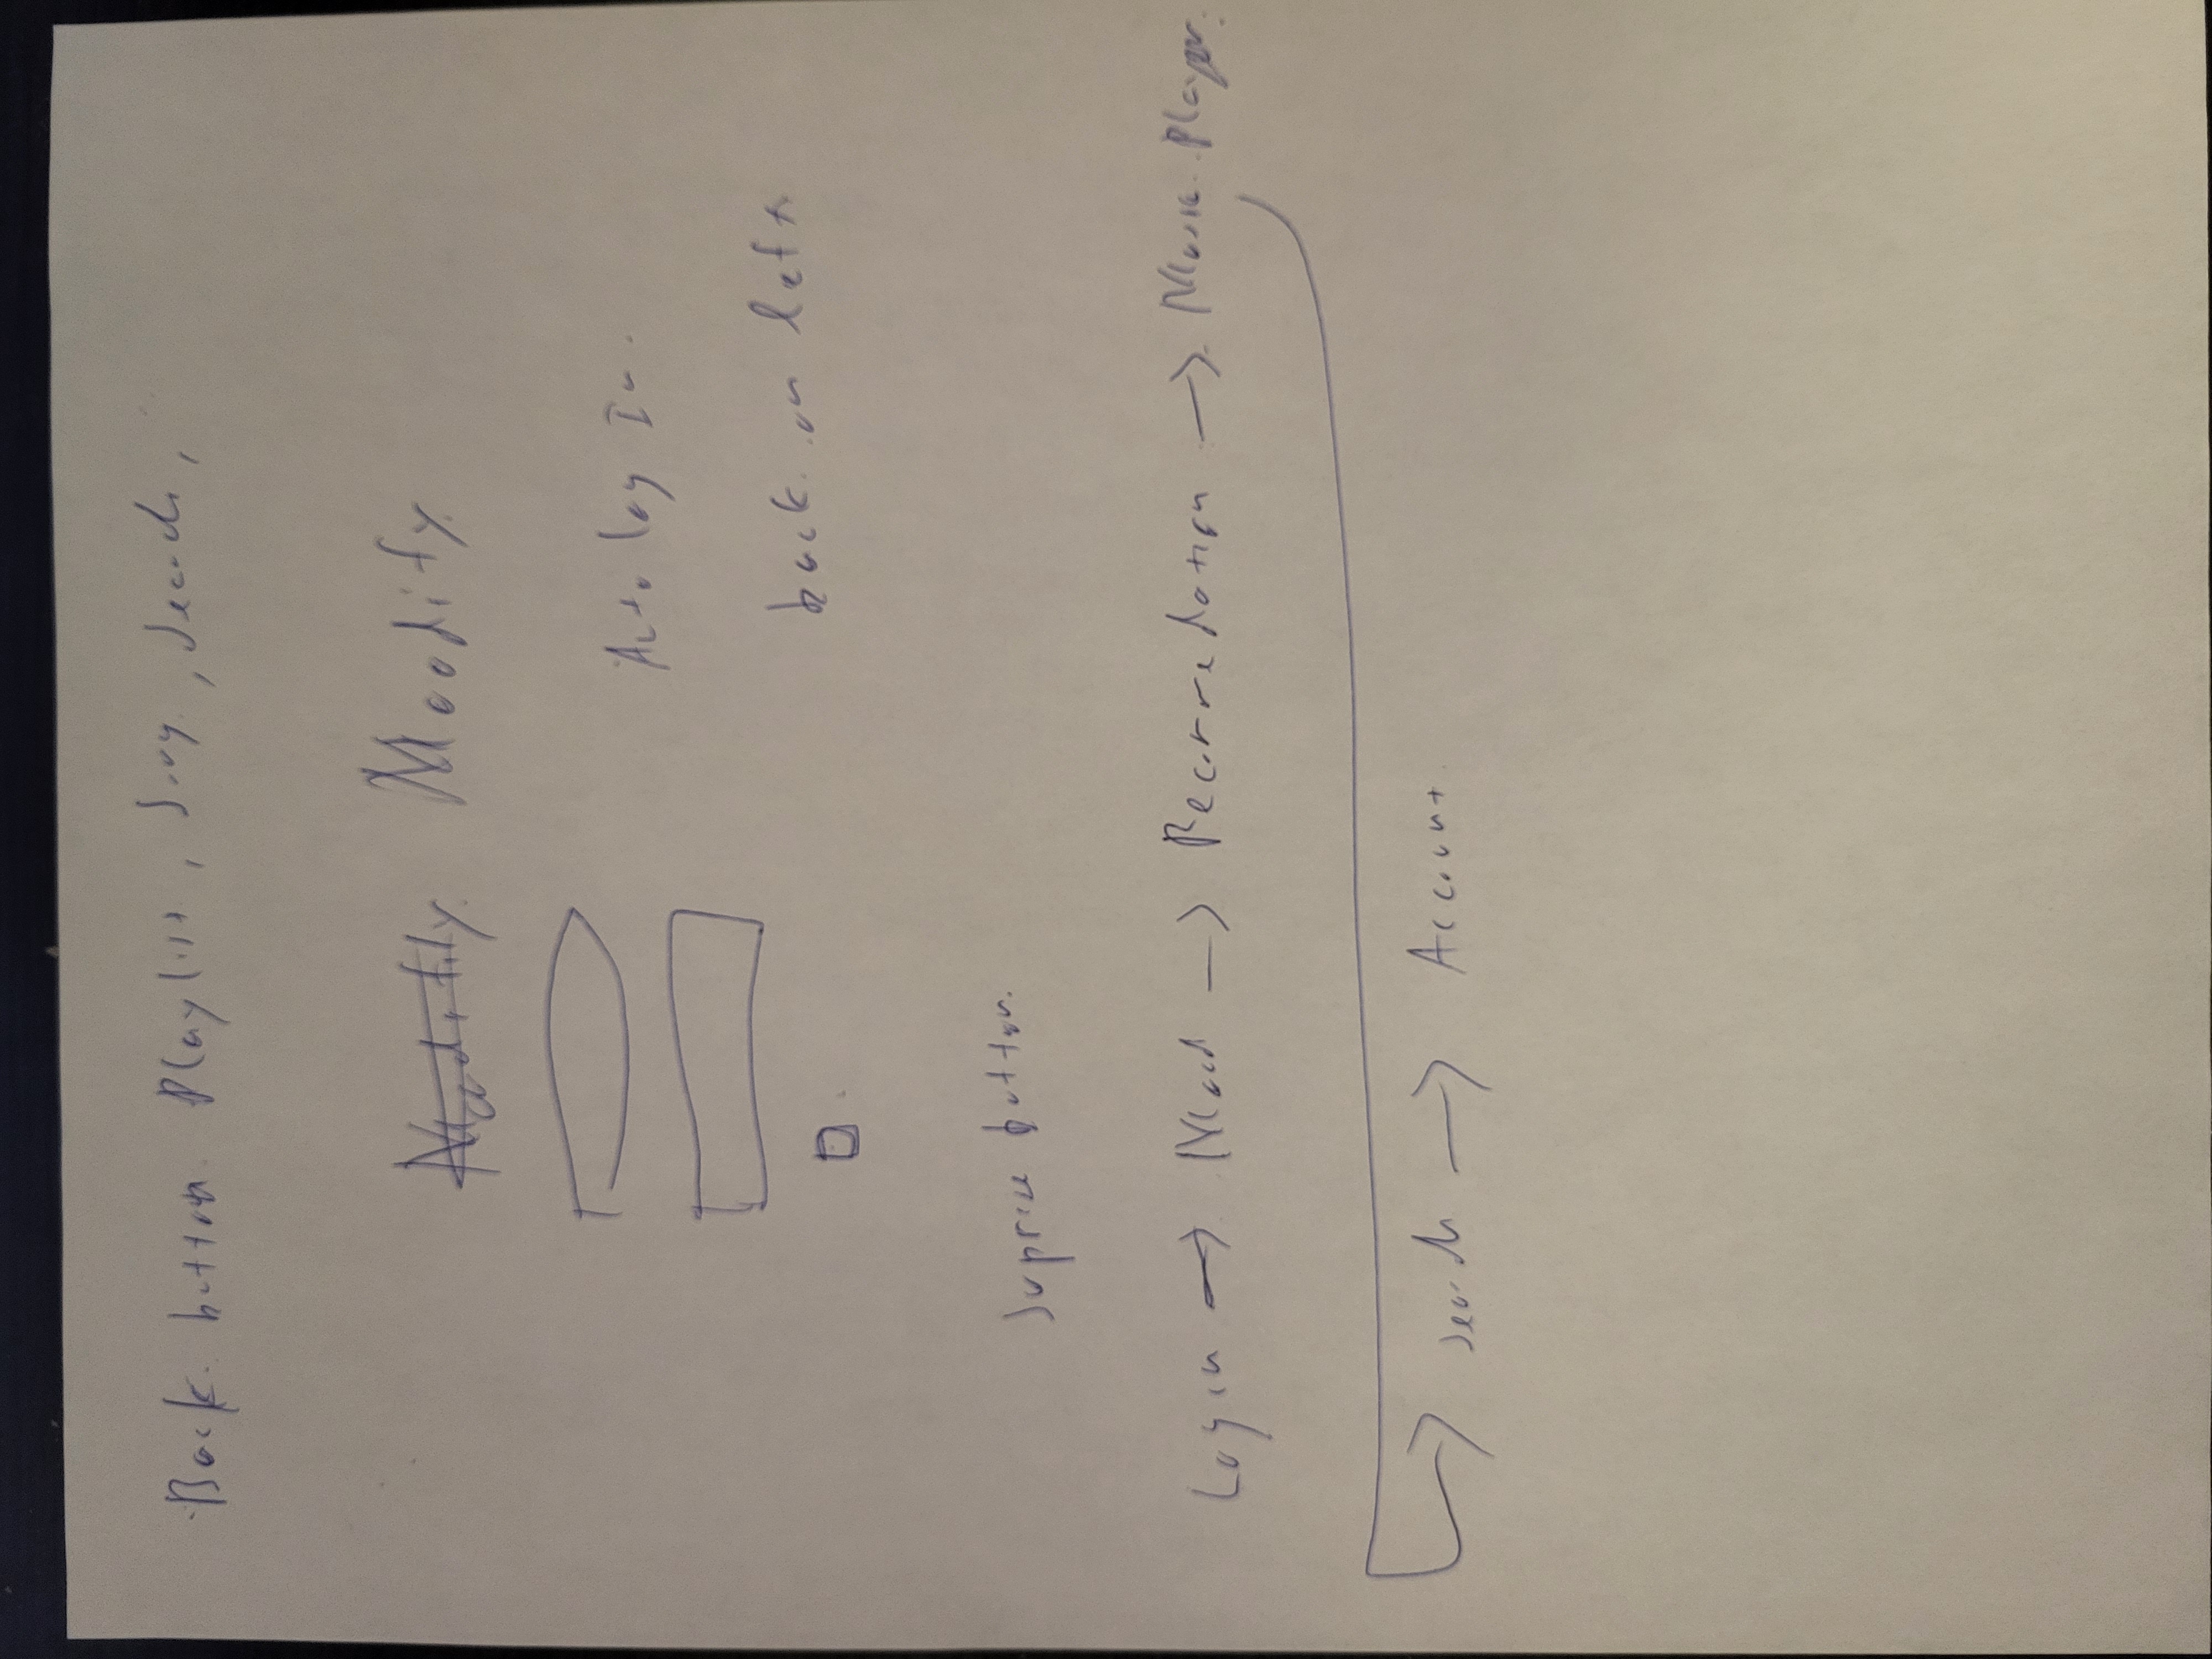 Back button Playlist, Song, Search,
Moodify
Auto log In.
back on left
Suprise button.
Login → Mood → Recommedation → Music Player.
Search → Account